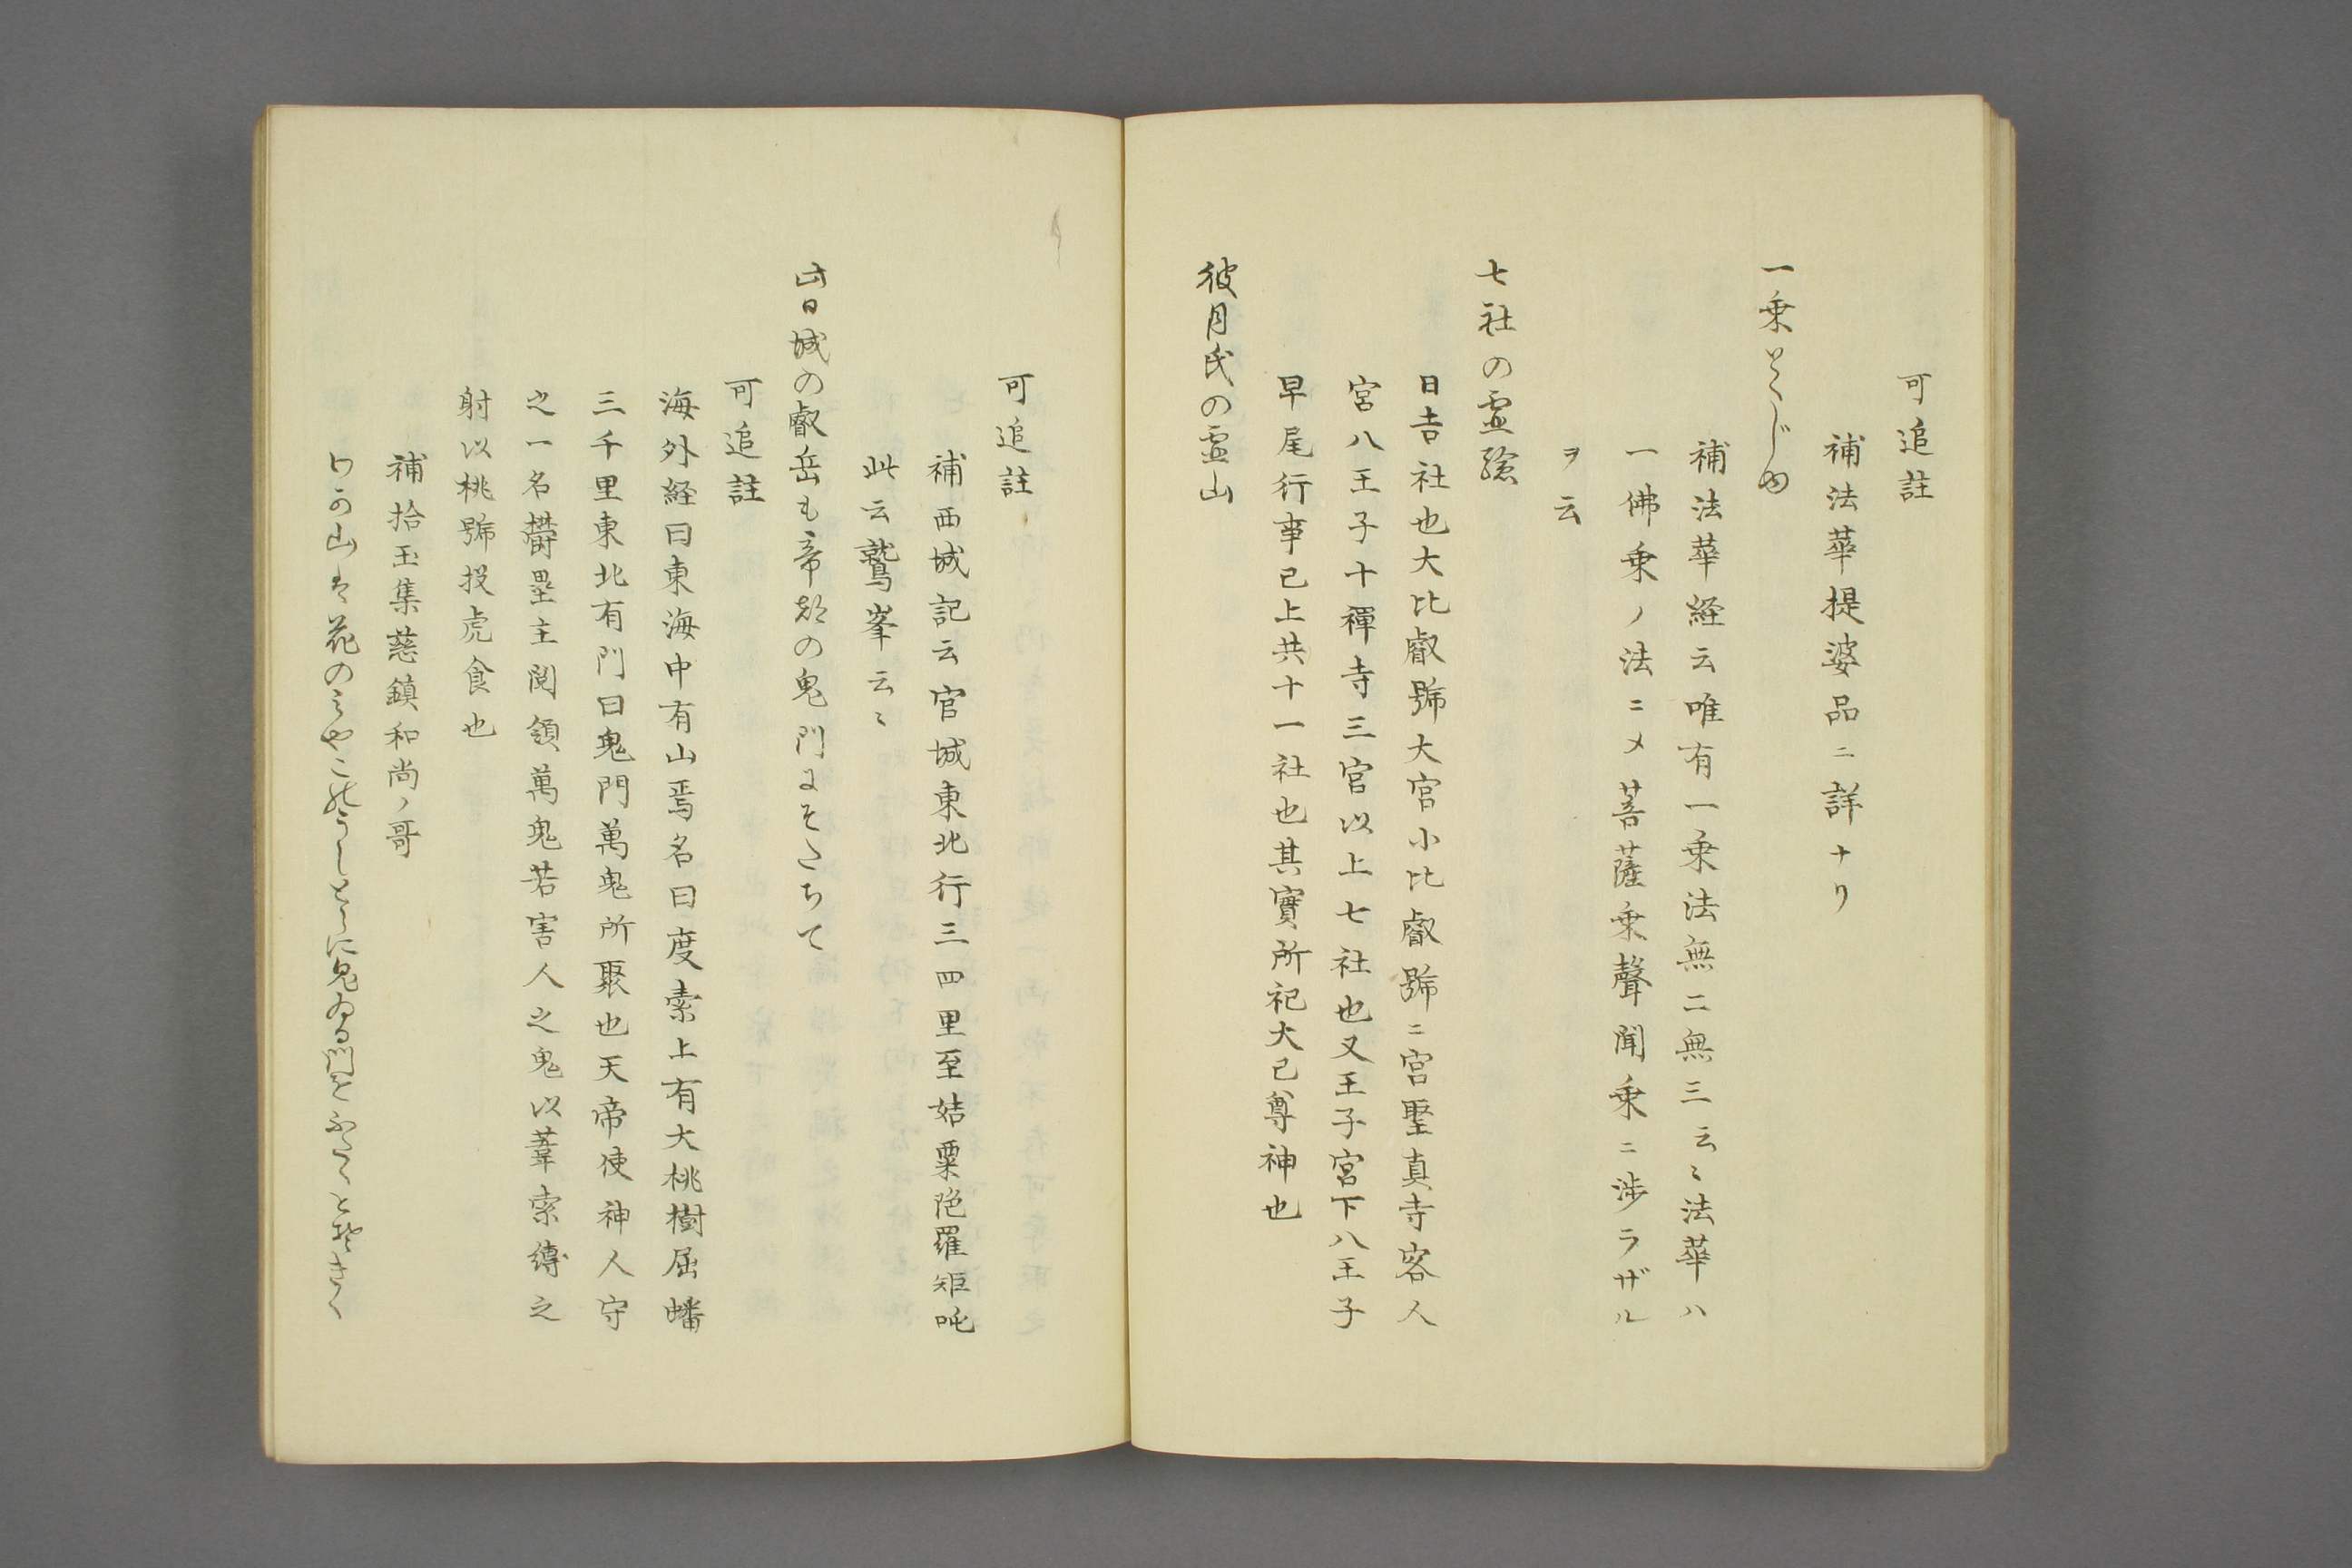 可追註
補法華提婆品ニ詳ナリ
一乗とくじゆ
補法華経云唯有一乗法無二無三云〻法華ハ
一佛乗ノ法ニメ菩薩乗聲聞乗ニ渉ラザル
ヲ云
七社の霊験
日吉社也大比叡號大宮小比叡號ニ宮聖真寺客人
宮八王子十禪寺三宮以上七社也又王子宮下八王子
早尾行事已上共十一社也其實所祀大己尊神也
彼月氏の霊山
可追註
補西城記云官城東北行三四里至姞栗陁羅矩吒
此云鷲峯云〻
此日城の叡岳も帝都の鬼門にそたちて
可追註
海外経曰東海中有山焉名曰度索上有大桃樹屈蟠
三千里東北有門曰鬼門萬鬼所聚也天帝使神人守
之一名欝塁主閲領萬鬼若害人之鬼以葦索縳之
射以桃號投虎食也
補拾玉集慈鎮和尚ノ哥
わか山は花のみやこのうしとらに鬼ゐる門をふたくとそきく